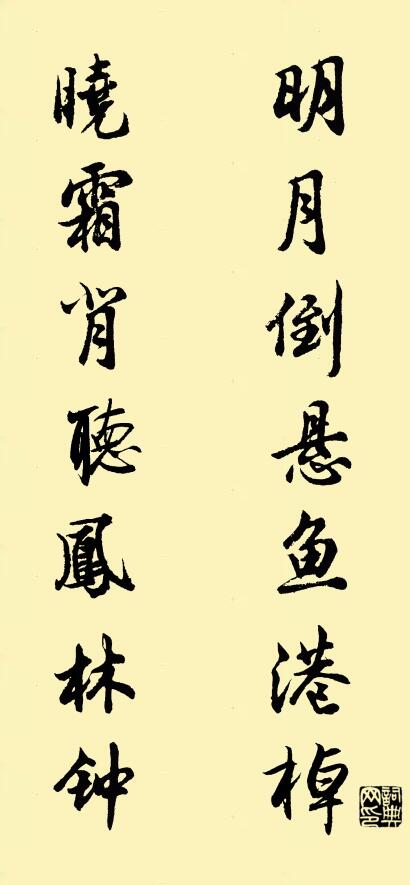 明月倒悬鱼港棹
曉霜背聽鳳林钟
詞典网印